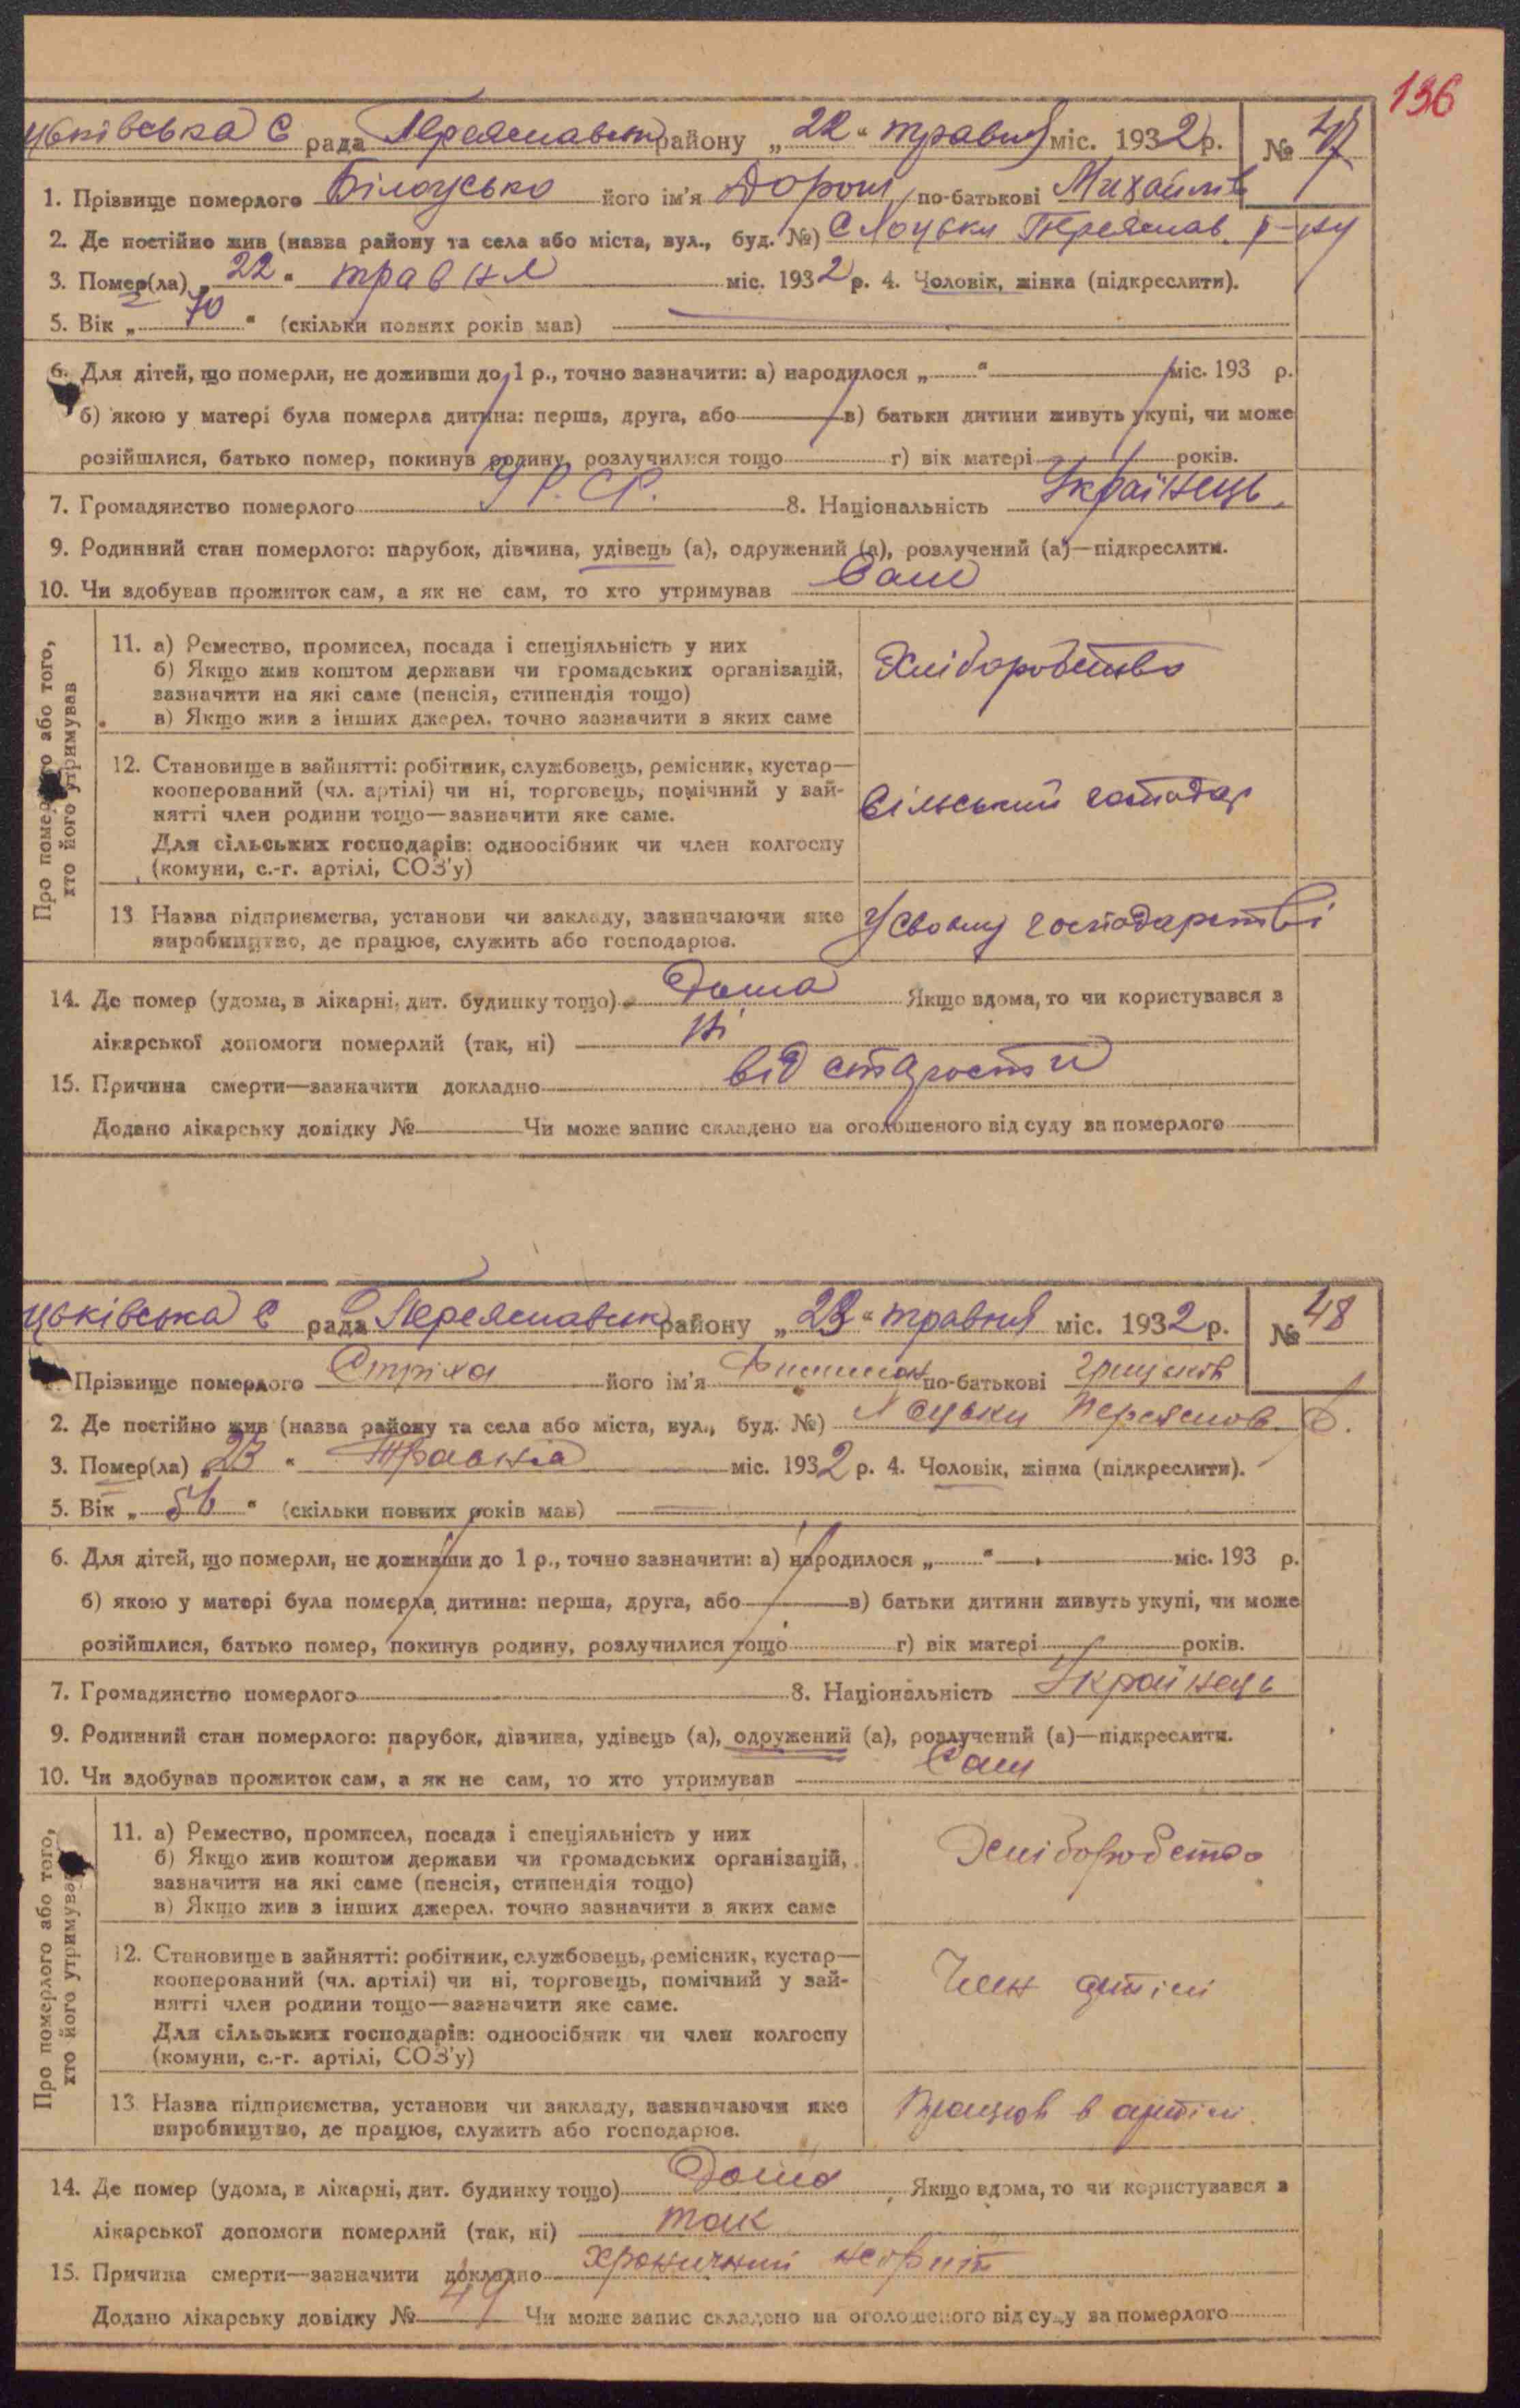 136
цьківська С рада Переяславськ району „22“ травня міс. 1932 р. № 47
1. Прізвище померлого Білоусько його ім'я Дорош по-батькові Михайлів
2. Де постійно жив (назва району та села або міста, вул., буд. №) С Лоцьки Переяслав р-ну
3. Помер(ла) „22“ травня міс. 1932 р. 4. Чоловік, жінка (підкреслити).
5. Вік „70“ (скільки повних років мав)
6. Для дітей, що померли, не доживши до 1 р., точно зазначити: а) народилося „ “ міс. 193 р.
б) якою у матері була померла дитина: перша, друга, або в) батьки дитини живуть укупі, чи може
розійшлися, батько помер, покинув родину, розлучилися тощо г) вік матері років.
7. Громадянство померлого У.Р.СР. 8. Національність Українець
9. Родинний стан померлого: парубок, дівчина, удівець (а), одружений (а), розлучений (а)—підкреслити.
10. Чи здобував прожиток сам, а як не сам, то хто утримував Сам
Про померлого або того,
хто його утримував
11. а) Ремество, промисел, посада і спеціяльність у них
б) Якщо жив коштом держави чи громадських організацій,
зазначити на які саме (пенсія, стипендія тощо)
в) Якщо жив з інших джерел, точно зазначити з яких саме
Хліборобство
12. Становище в зайнятті: робітник, службовець, ремісник, кустар—
кооперований (чл. артілі) чи ні, торговець, помічний у зай-
нятті член родини тощо—зазначити яке саме.
Для сільських господарів: одноосібник чи член колгоспу
(комуни, с.-г. артілі, СОЗ'у)
Сільський господар
13 Назва підприємства, установи чи закладу, зазначаючи яке
виробництво, де працює, служить або господарює.
У своєму господарстві
14. Де помер (удома, в лікарні, дит. будинку тощо) Дома Якщо вдома, то чи користувався з
лікарської допомоги померлий (так, ні) Ні
15. Причина смерти—зазначити докладно від старости
Додано лікарську довідку № Чи може запис складено на оголошеного від суду за померлого
цьківська С рада Переяславськ району „23“ травня міс. 1932 р. № 48
1. Прізвище померлого Стріха його ім'я по-батькові Грицьків
2. Де постійно жив (назва району та села або міста, вул., буд. №) Лоцьки Переяслов
3. Помер(ла) „23“ Травня міс. 1932 р. 4. Чоловік, жінка (підкреслити).
5. Вік „ “ (скільки повних років мав)
6. Для дітей, що померли, не доживши до 1 р., точно зазначити: а) народилося „ “ міс. 193 р.
б) якою у матері була померла дитина: перша, друга, або в) батьки дитини живуть укупі, чи може
розійшлися, батько помер, покинув родину, розлучилися тощо г) вік матері років.
7. Громадянство померлого 8. Національність Українець
9. Родинний стан померлого: парубок, дівчина, удівець (а), одружений (а), розлучений (а)—підкреслити.
10. Чи здобував прожиток сам, а як не сам, то хто утримував Сам
Про померлого або того,
хто його утримував
11. а) Ремество, промисел, посада і спеціяльність у них
б) Якщо жив коштом держави чи громадських організацій,
зазначити на які саме (пенсія, стипендія тощо)
в) Якщо жив з інших джерел, точно зазначити з яких саме
Хліборобство
12. Становище в зайнятті: робітник, службовець, ремісник, кустар—
кооперований (чл. артілі) чи ні, торговець, помічний у зай-
нятті член родини тощо—зазначити яке саме.
Для сільських господарів: одноосібник чи член колгоспу
(комуни, с.-г. артілі, СОЗ'у)
Член артілі
13 Назва підприємства, установи чи закладу, зазначаючи яке
виробництво, де працює, служить або господарює.
Працюв в артілі
14. Де помер (удома, в лікарні, дит. будинку тощо) Дома Якщо вдома, то чи користувався з
лікарської допомоги померлий (так, ні) так
15. Причина смерти—зазначити докладно хроничний нефрит
Додано лікарську довідку № 49 Чи може запис складено на оголошеного від суду за померлого